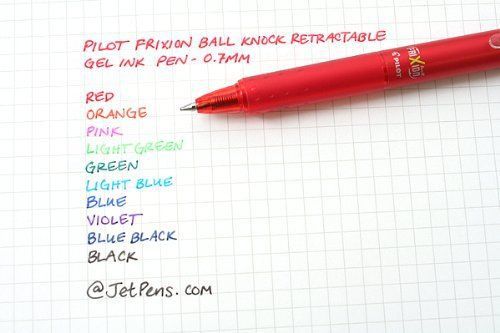 PILOT FRIXION BALL KNOCK RETRACTABLE
GEL INK PEN - 0.7MM
RED
ORANGE
PINK
LIGHT GREEN
GREEN
LIGHT BLUE
BLUE
VIOLET
BLUE BLACK
BLACK
@JetPens.com
FRIXION Ball
PILOT